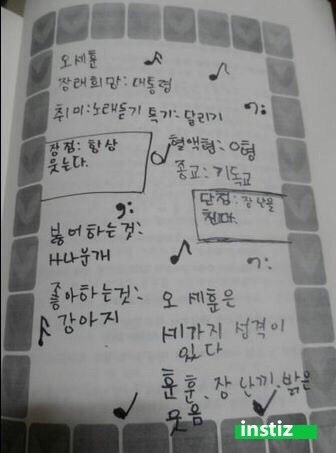 오세훈
장래희망: 대통령
취미: 노래듣기 특기: 달리기
장점: 항상
웃는다.
혈액형: O형
종교: 기독교
단점: 장난을
친다.
싫어하는것:
바나분개
좋아하는것:
강아지
오세훈은
세가지 성격이
있다
훈훈, 장난끼, 밝은
웃음
instiz